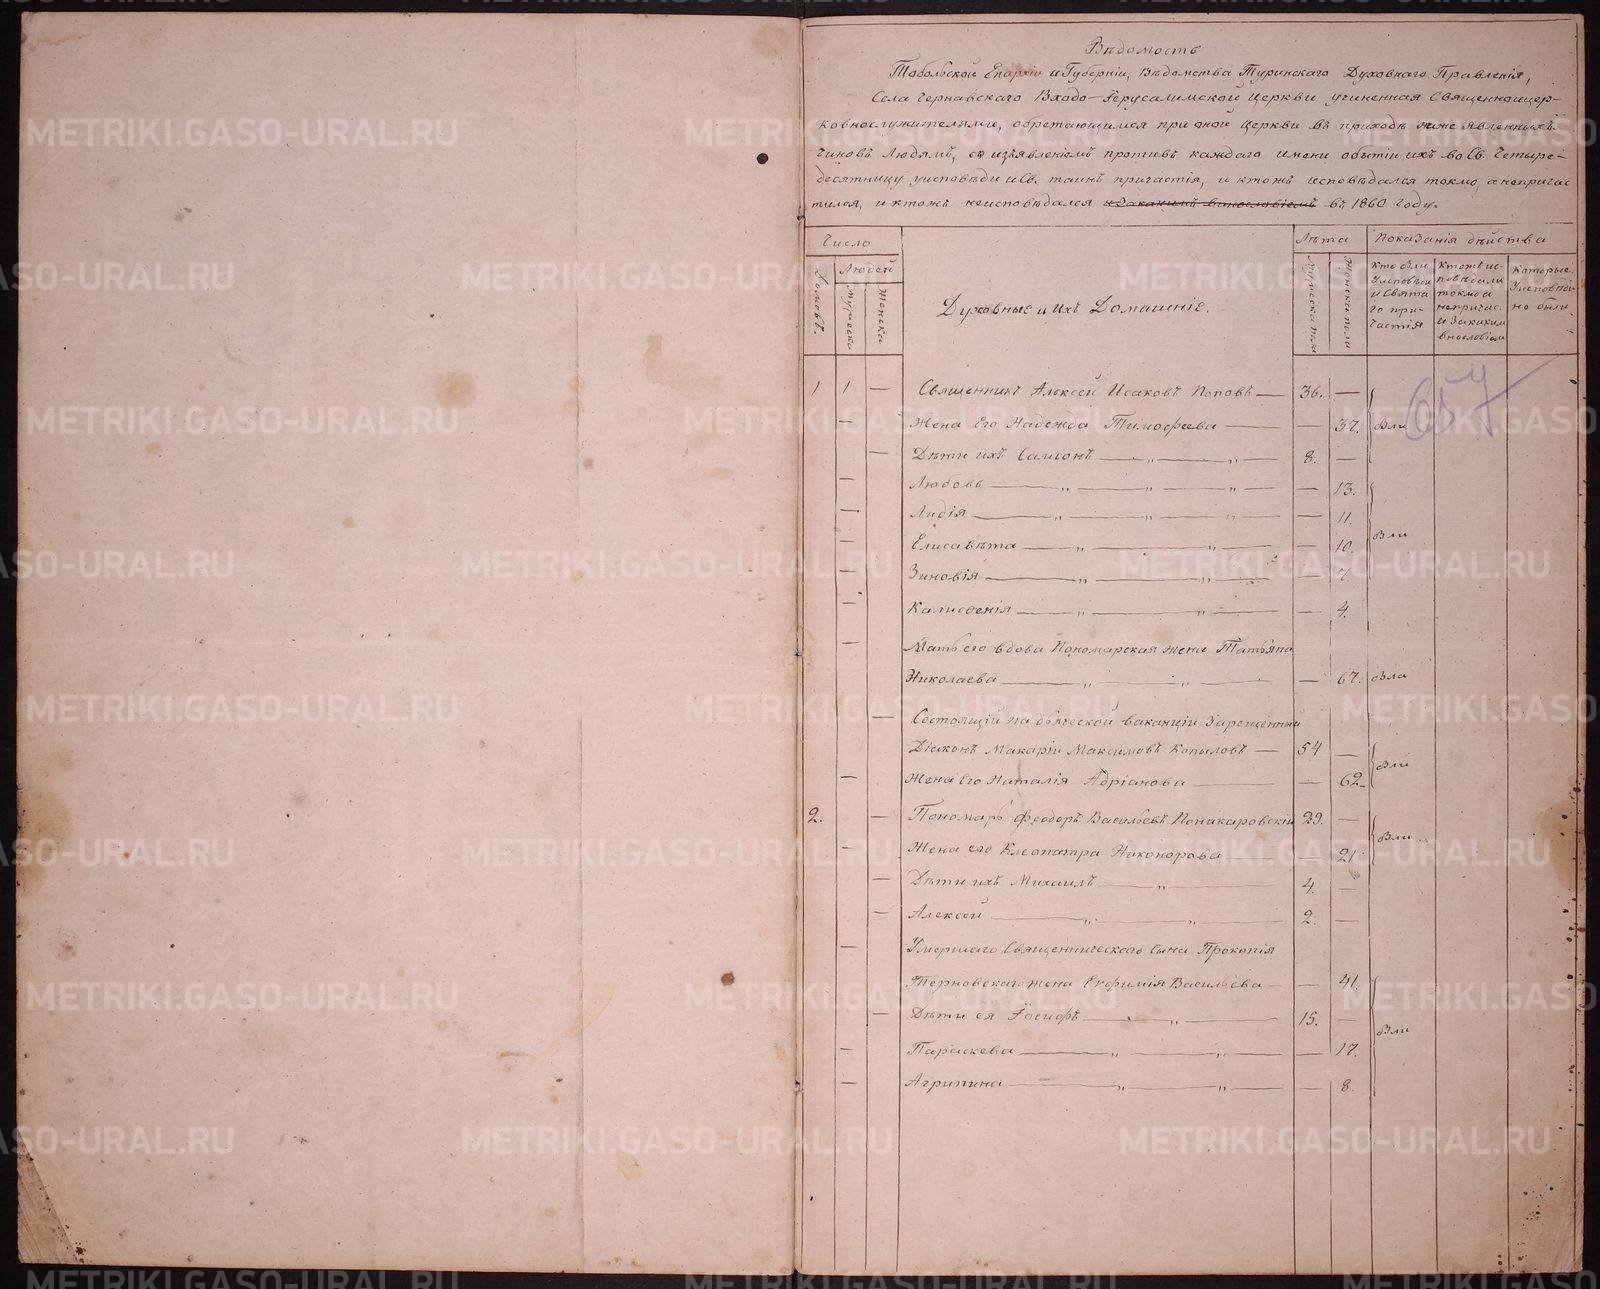 Вѣдомость
Тобольской Епархіи и Губерніи, Вѣдомства Туринскаго Духовнаго Правленія,
Села Чернавскаго Входо-Іерусалимской Церкви учиненная Священноцер-
ковнослужителями, обретающимся при оной Церкви въ приходѣ ниже явленныхъ
чиновъ Людямъ, со изъявленіемъ противъ каждаго имени о бытіи ихъ во Св. Четыре-
десятницу у исповѣди и Св. таинъ причастія, и ктожъ исповѣдался токмо, а непричас
тился, и ктожъ неисповѣдался въ 1860 Году.
Число
Лѣта
Показанія дѣйства
Домовъ.
Людей
Мужеска
Женска
Духовные и Ихъ Домашніе.
Мужеска пола
Женска поли
Кто были У исповѣди и Свята го при- частія
Ктожъ ис- повѣдали токмо а непричас. и За каким виносло віем
Которые У исповѣди не были.
1 1 — Священникъ Алексей Исаковъ Поповъ — 36. —
— Жена Его Надежда Тимофеева — — 37. Бли
— Дѣти ихъ Самсонъ — „ — „ — 8. —
— Любовь — „ — „ — „ — — 13.
— Лидія — „ — „ — „ — — 11.
— Елисавѣта — „ — „ — — 10. Бли
— Зиновія — „ — „ — — 7.
— Калисѳенія — „ — „ — — 4.
— Мать его вдова Пономарская жена Татьяна
Николаева — „ — „ — — 67. Бла
— Состоящій на дьяческой ваканціи Запрещенный
Діаконъ Макарій Максимовъ Копыловъ — 54 —
— Жена Его Наталія Адріанова — — 62 Бли
2. — Пономарь Феодоръ Васильевъ Поникаровскій 29. —
— Жена его Клеопатра Никонорова — 21 Бли
— Дѣти ихъ Михаилъ — „ — 4. —
— Алексей — „ — „ — 2. —
— Умершаго Священническаго Сына Прокопія
Терновскаго жена Евфимія Васильева — — 41.
— Дѣти ея Іосифъ — „ — 15. —
Бли
— Параскева — „ — „ — — 17.
— Агрипина — „ — „ — — 8.
METRIKI.GASO-URAL.RU